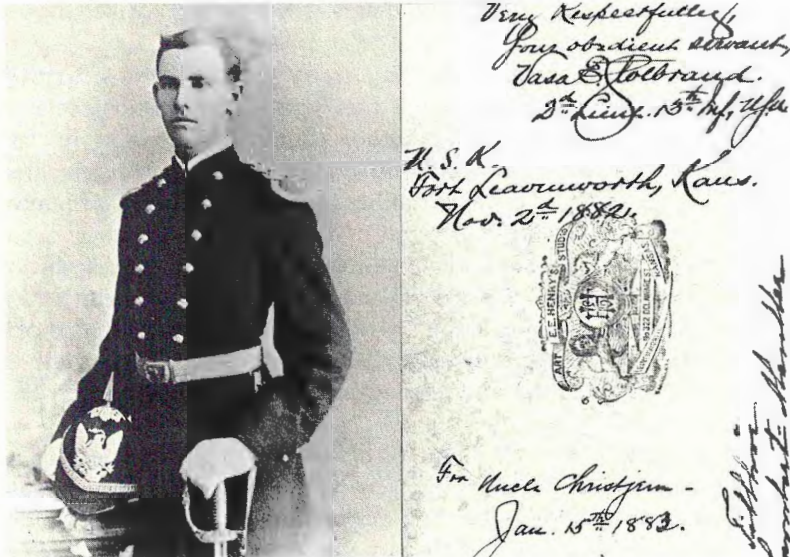 Very Respectfully,
Your obedient servant,
Vasa E. Stolbrand.
2d Lieut. 13th Inf, U.S.A.
U. S. A.
Fort Leavenworth, Kans.
Nov. 2d 1882.
ART
E.E. HENRY'S
STUDIO
For Uncle Christjern -
Jan. 15th 1883.